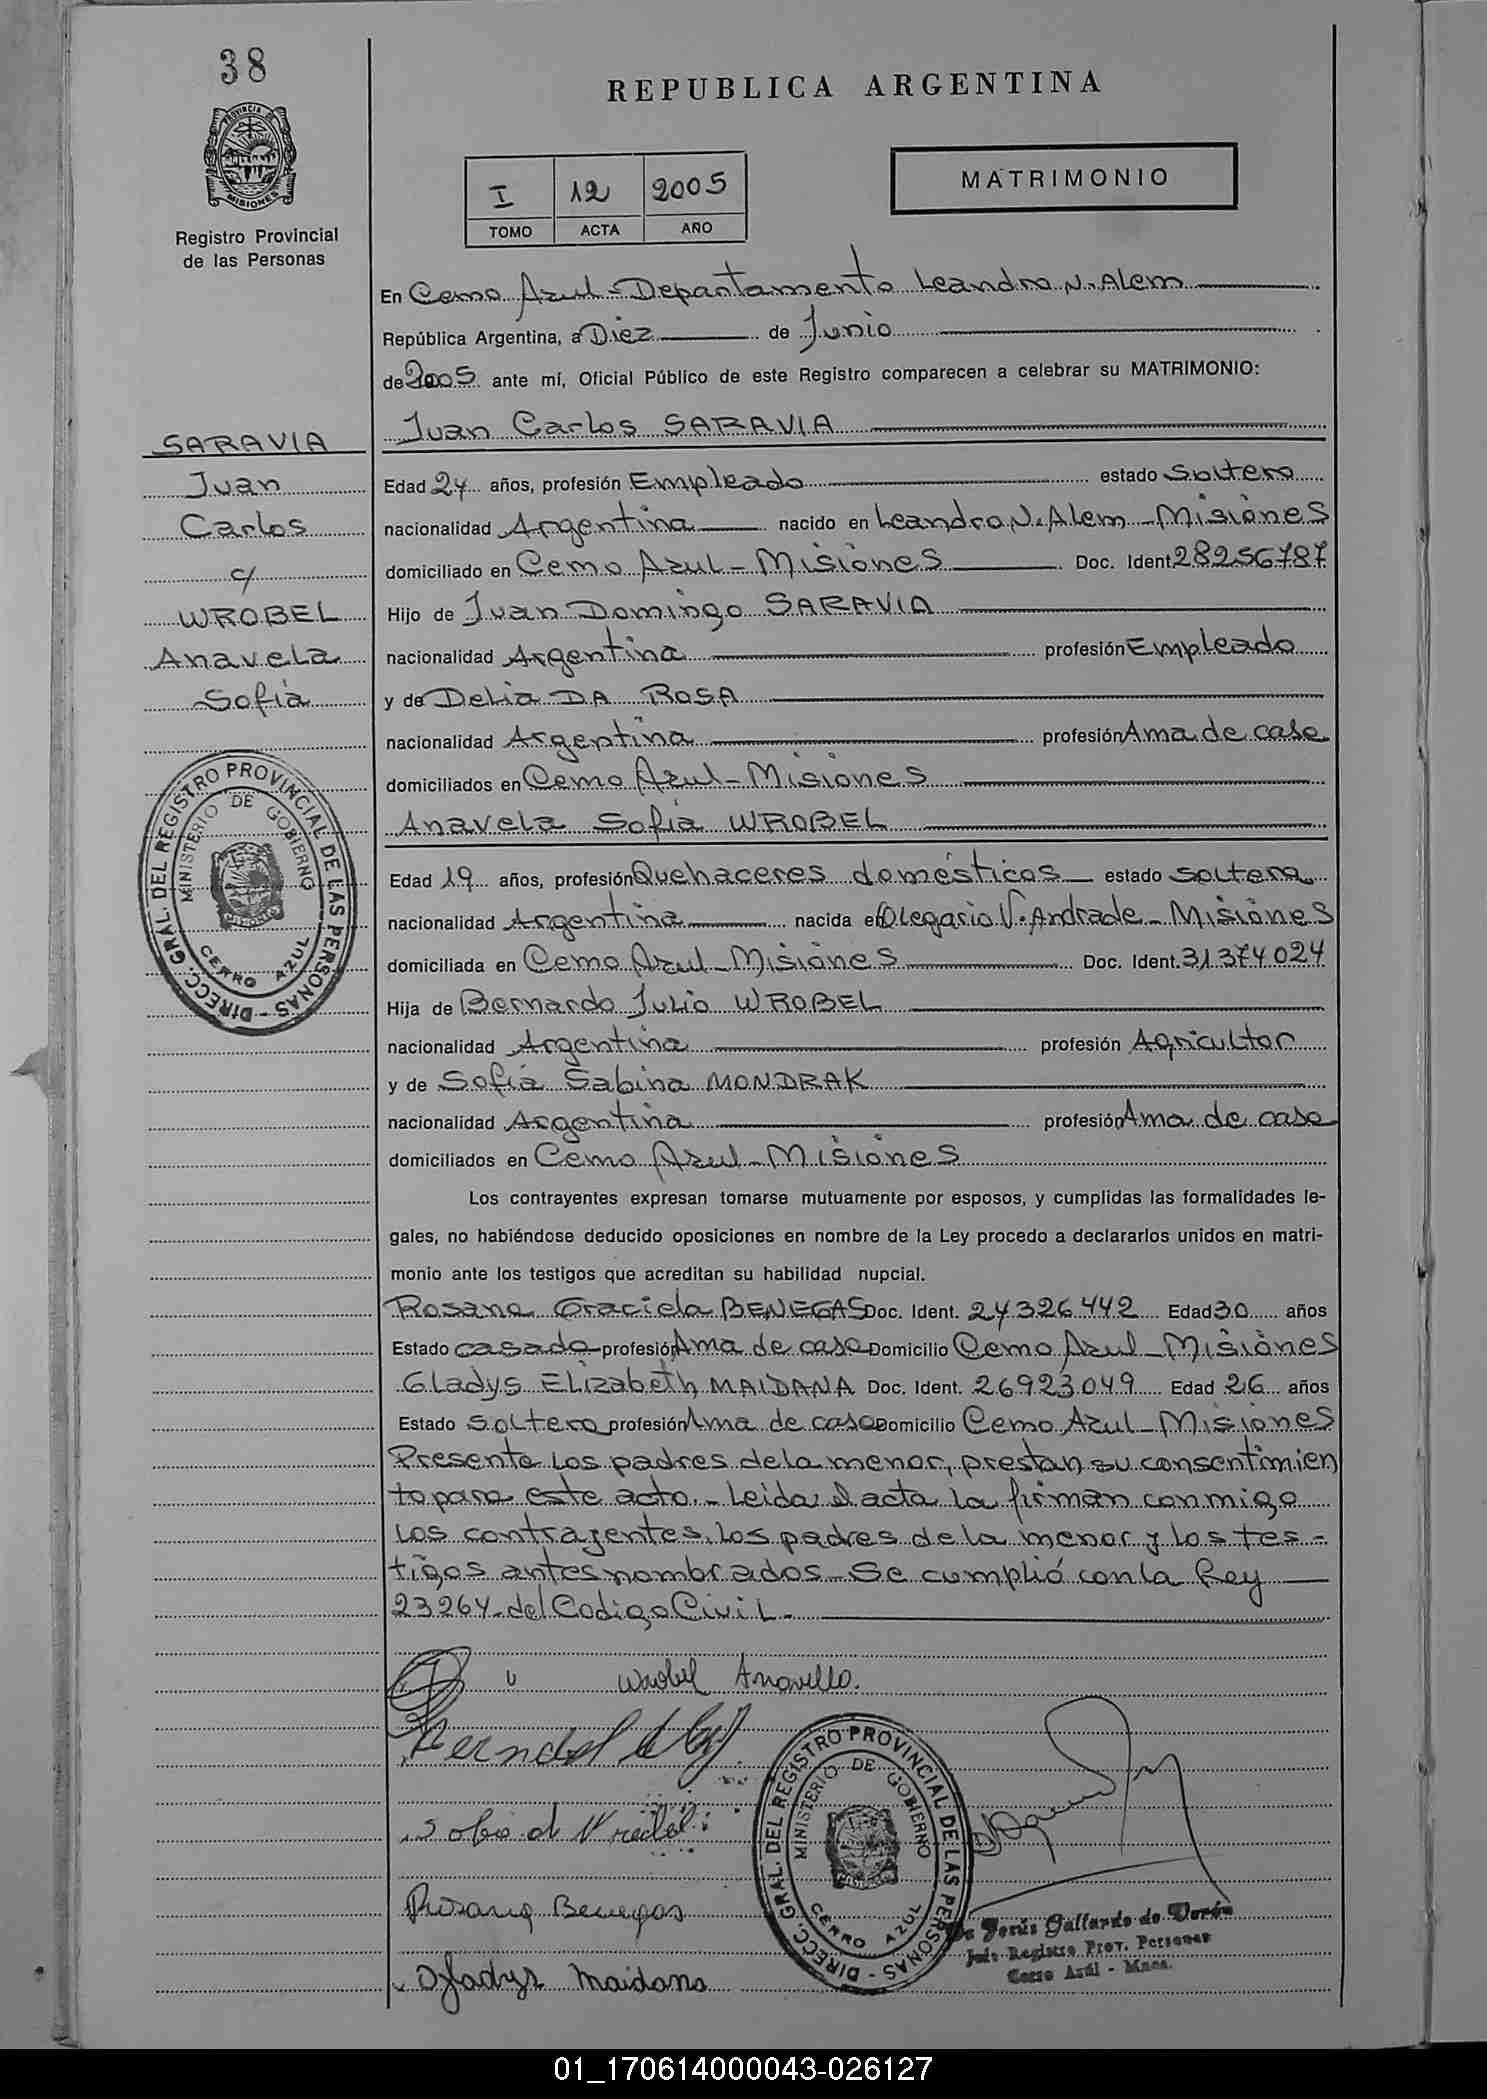 38
REPUBLICA ARGENTINA
PROVINCIA DE
MISIONES
I 12 2005
TOMO ACTA AÑO
MATRIMONIO
Registro Provincial
de las Personas
En Cerro Azul - Departamento Leandro N. Alem
República Argentina, a Diez de Junio
de 2005 ante mí, Oficial Público de este Registro comparecen a celebrar su MATRIMONIO:
Juan Carlos SARAVIA
SARAVIA
Juan
Carlos
c/
WROBEL
Anavela
Sofia
Edad 24 años, profesión Empleado estado Soltero
nacionalidad Argentina nacido en Leandro N. Alem - Misiones
domiciliado en Cerro Azul - Misiones Doc. Ident. 28256787
Hijo de Juan Domingo SARAVIA
nacionalidad Argentina profesión Empleado
y de Delia DA ROSA
nacionalidad Argentina profesión Ama de casa
domiciliados en Cerro Azul - Misiones
Anavela Sofia WROBEL
Edad 19 años, profesión Quehaceres domésticos estado soltera
nacionalidad Argentina nacida en Olegario V. Andrade - Misiones
domiciliada en Cerro Azul - Misiones Doc. Ident. 31374024
Hija de Bernardo Julio WROBEL
nacionalidad Argentina profesión Agricultor
y de Sofia Sabina MONDRAK
nacionalidad Argentina profesión Ama de casa
domiciliados en Cerro Azul - Misiones
Los contrayentes expresan tomarse mutuamente por esposos, y cumplidas las formalidades le-
gales, no habiéndose deducido oposiciones en nombre de la Ley procedo a declararlos unidos en matri-
monio ante los testigos que acreditan su habilidad nupcial.
Rosana Graciela BENEGAS Doc. Ident. 24326442 Edad 30 años
Estado casada profesión Ama de casa Domicilio Cerro Azul - Misiones
Gladys Elizabeth MAIDANA Doc. Ident. 26923049 Edad 26 años
Estado soltera profesión Ama de casa Domicilio Cerro Azul - Misiones
Presente los padres de la menor, prestan su consentimien
to para este acto. - Leida el acta la firman conmigo
los contrayentes, los padres de la menor y los tes-
tigos antes nombrados - Se cumplió con la Ley
23264 - del Codigo Civil -
Wrobel Anavella.
Rosana Benegas
Gladys Maidana
DIRECC. GRAL. DEL REGISTRO PROVINCIAL DE LAS PERSONAS
MINISTERIO DE GOBIERNO
CERRO AZUL
DIRECC. GRAL. DEL REGISTRO PROVINCIAL DE LAS PERSONAS
MINISTERIO DE GOBIERNO
CERRO AZUL
Jesús Gallardo de Verón
Jefe Registro Prov. Personas
Cerro Azúl - Mnes.
01_170614000043-026127